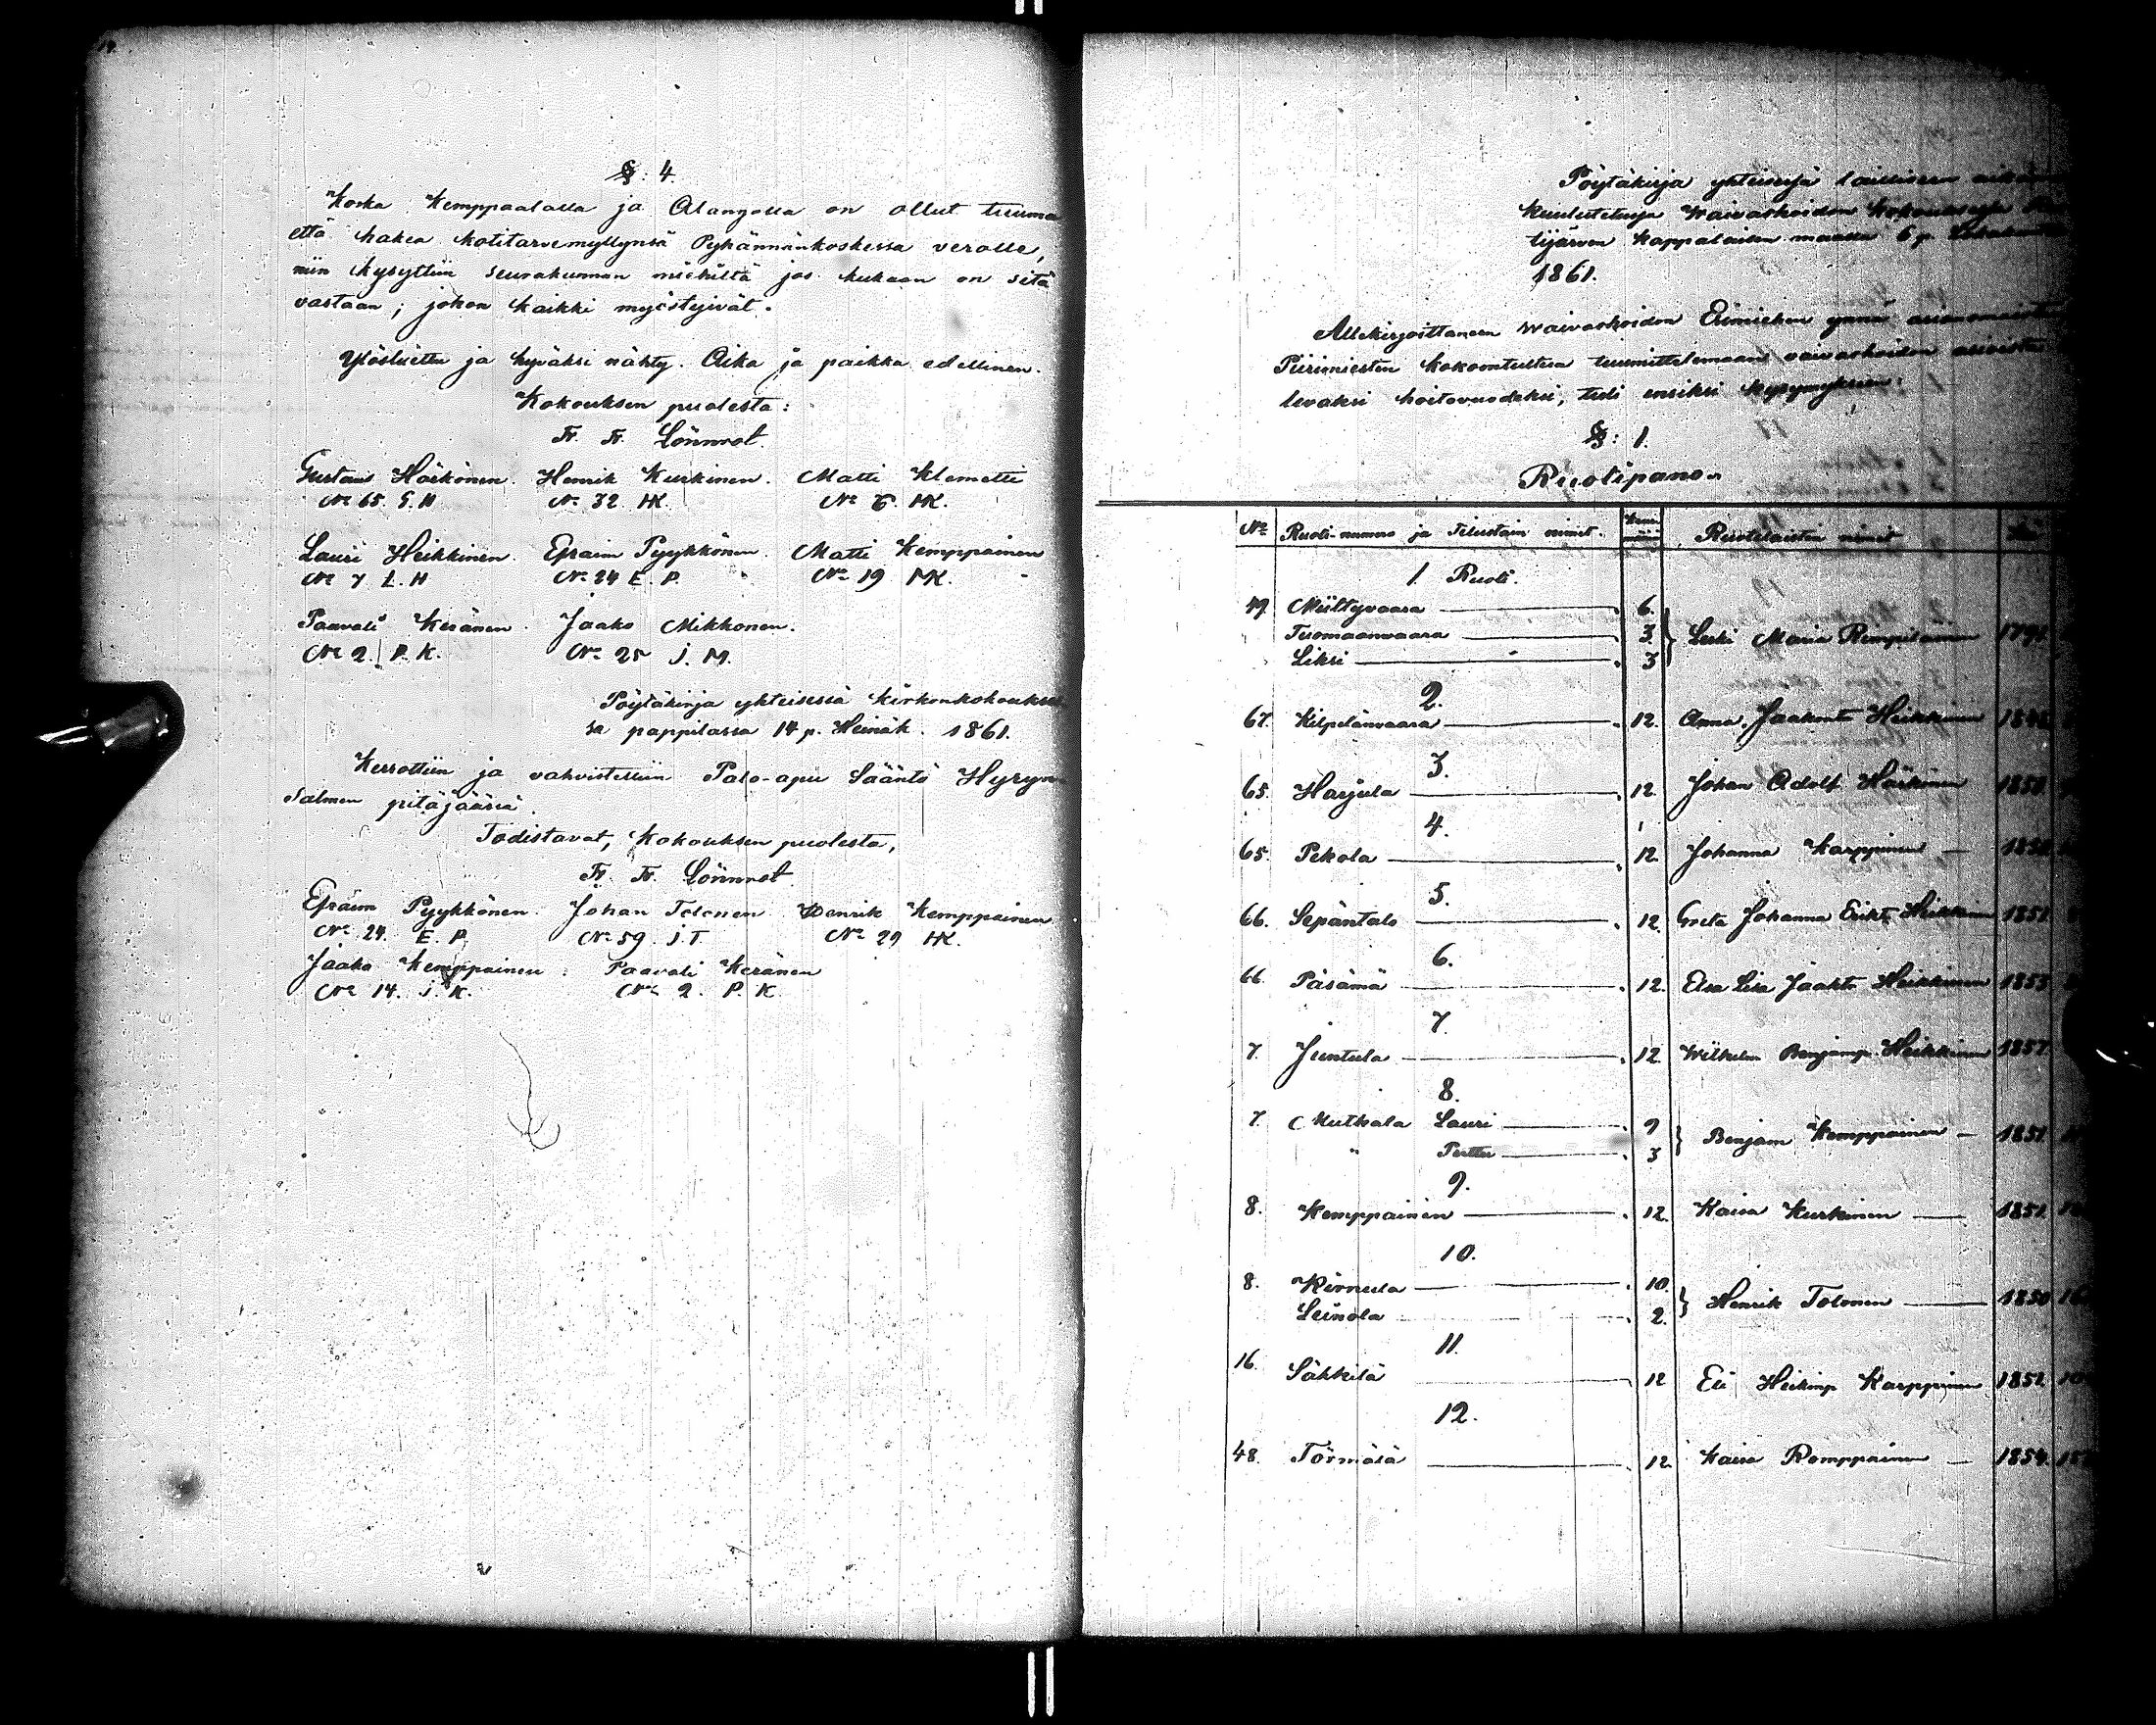 §: 4.
Koska Kemppaalalla ja Alangolla on ollut tuuma
että hakea kotitarvemyllynsä Pyhännänkoskessa verolle,
niin kysyttiin seurakunnan miehiltä jos kukaan on sitä
vastaan; johon kaikki myöstyivät.
Ylösluettu ja hyväksi nähty. Aika ja paikka edellinen.
Kokouksen puolesta:
Fr. Fr. Lönnrot.
Gustav Härkönen. Henrik Kurkinen. Matti Klemetti
No 65. G. H No 32. HK. No 6. MK.
Lauri Heikkinen. Efraim Pyykkönen. Matti Kemppainen
No 7 L. H No 24 E. P. No 19 MK.
Paavali Keränen. Jaako Mikkonen.
No 2. P. K. No 25 J. M.
Pöytäkirja yhteisessä kirkonkokoukses
sa pappilassa 14 p. Heinäk. 1861.
Kerrottiin ja vahvistettiin Palo-apu Sääntö Hyryn
salmen pitäjäässä.
Todistavat, Kokouksen puolesta,
Fr. Fr. Lönnrot.
Efraim Pyykkönen. Johan Tolonen Henrik Kemppainen
No 24. E. P. No 59. J. T. No 29 HK.
Jaako Kemppainen. Paavali Keränen
No 14. J. K. No 2. P. K.
Pöytäkirja yhteisessä laillisesen
kuulutetussa Waivashoidon kokouksessa
tijärven kappalaisen maassa 6 p.
1861.
Allekirjoittaneen Waivashoidon Esimiehen ynnä
Piirimiesten kokoontultua tuumittelemaan vaivashoidon
levaksi hoitovuodeksi, tuli ensiksi kysymykseen:
§: 1.
Ruotipano.
No Ruoti-numero ja Tilustain nimet. Ruotilaisten nimet
1. Ruoti.
49 Miiltyvaara 6.
Tuomaanvaara 3. } Leski Maria Rimpiläinen 1791.
Liksi 3
2.
67. Kilpelänvaara 12. Anna Jaakont. Heikkinen
3.
65. Harjula 12. Johan Adolf Härkönen 1850.
4.
65. Pekola 12. Johanna Karppinen
5.
66. Sepäntalo 12. Greta Johanna Erikt. Heikkinen 1851.
6.
66. Päsämä 12. Elsa Lisa Jaakt. Heikkinen 1853.
7.
7. Juntula 12. Wilhelm Benjamp. Heikkinen 1857.
8.
7. Mutkala Lauri 9
" Perttu 3 } Benjam Kemppainen 1851.
9.
8. Kemppainen 12. Kaisa Kurkinen 1851.
10.
8. Kirnula 10.
Leinola 2. } Henrik Tolonen 1850
11.
16. Säkkilä 12 Eli Heikinp. Karppinen 1852
12.
48. Törmälä 12. Kaisa Romppainen 1854.